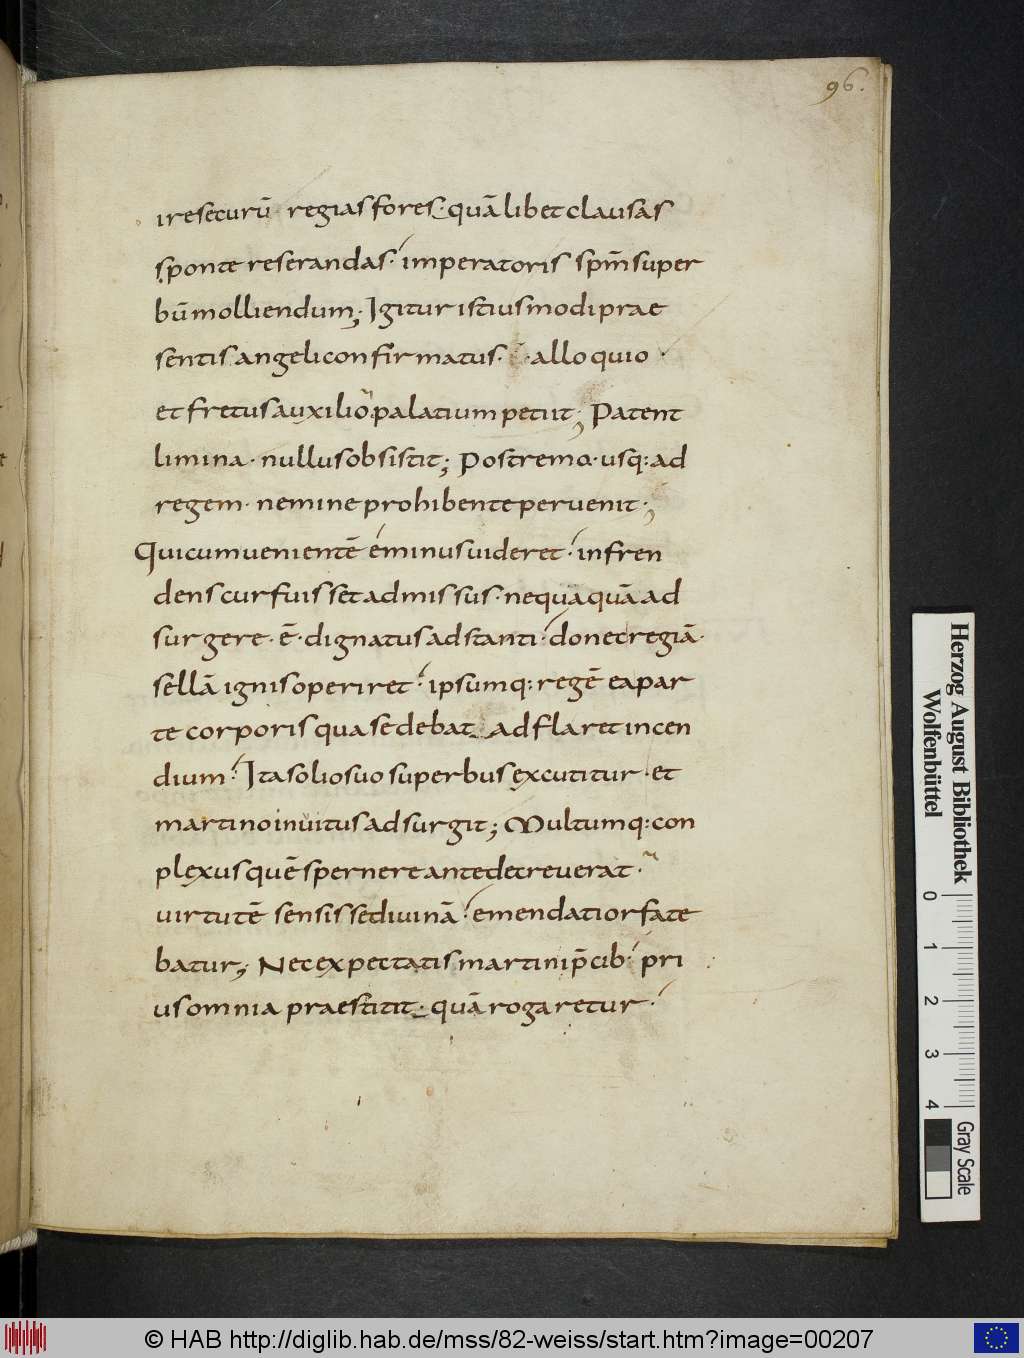 96.
ire securū regias fores quālibet clausas
sponte reserandas· imperatoris spm̄ super
bū molliendum; Igitur istiusmodi prae
sentis angeli confirmatus· ·alloquio·
et fretus auxilio palatium petiit; Patent
limina· nullus obsistit; Postremo· usq: ad
regem· nemine prohibente peruenit·;
Qui cum uenientē eminus uideret· infren
dens cur fuisset admissus· nequaquā ad
surgere· ē· dignatus adstanti· donec regiā·
sellā ignis operiret· ipsumq: regē ea par
te corporis qua sedebat adflaret incen
dium· Ita solio suo superbus excutitur· et
martino inuitus adsurgit; Multumq: con
plexus quē spernere ante decreuerat·
uirtutē sensisse diuinā· emendatior fate
batur; Nec expectatis martini p̄cib: pri
us omnia praestitit· quā rogaretur·
Herzog August Bibliothek
Wolfenbüttel
0
1
2
3
4
Gray Scale
© HAB http://diglib.hab.de/mss/82-weiss/start.htm?image=00207